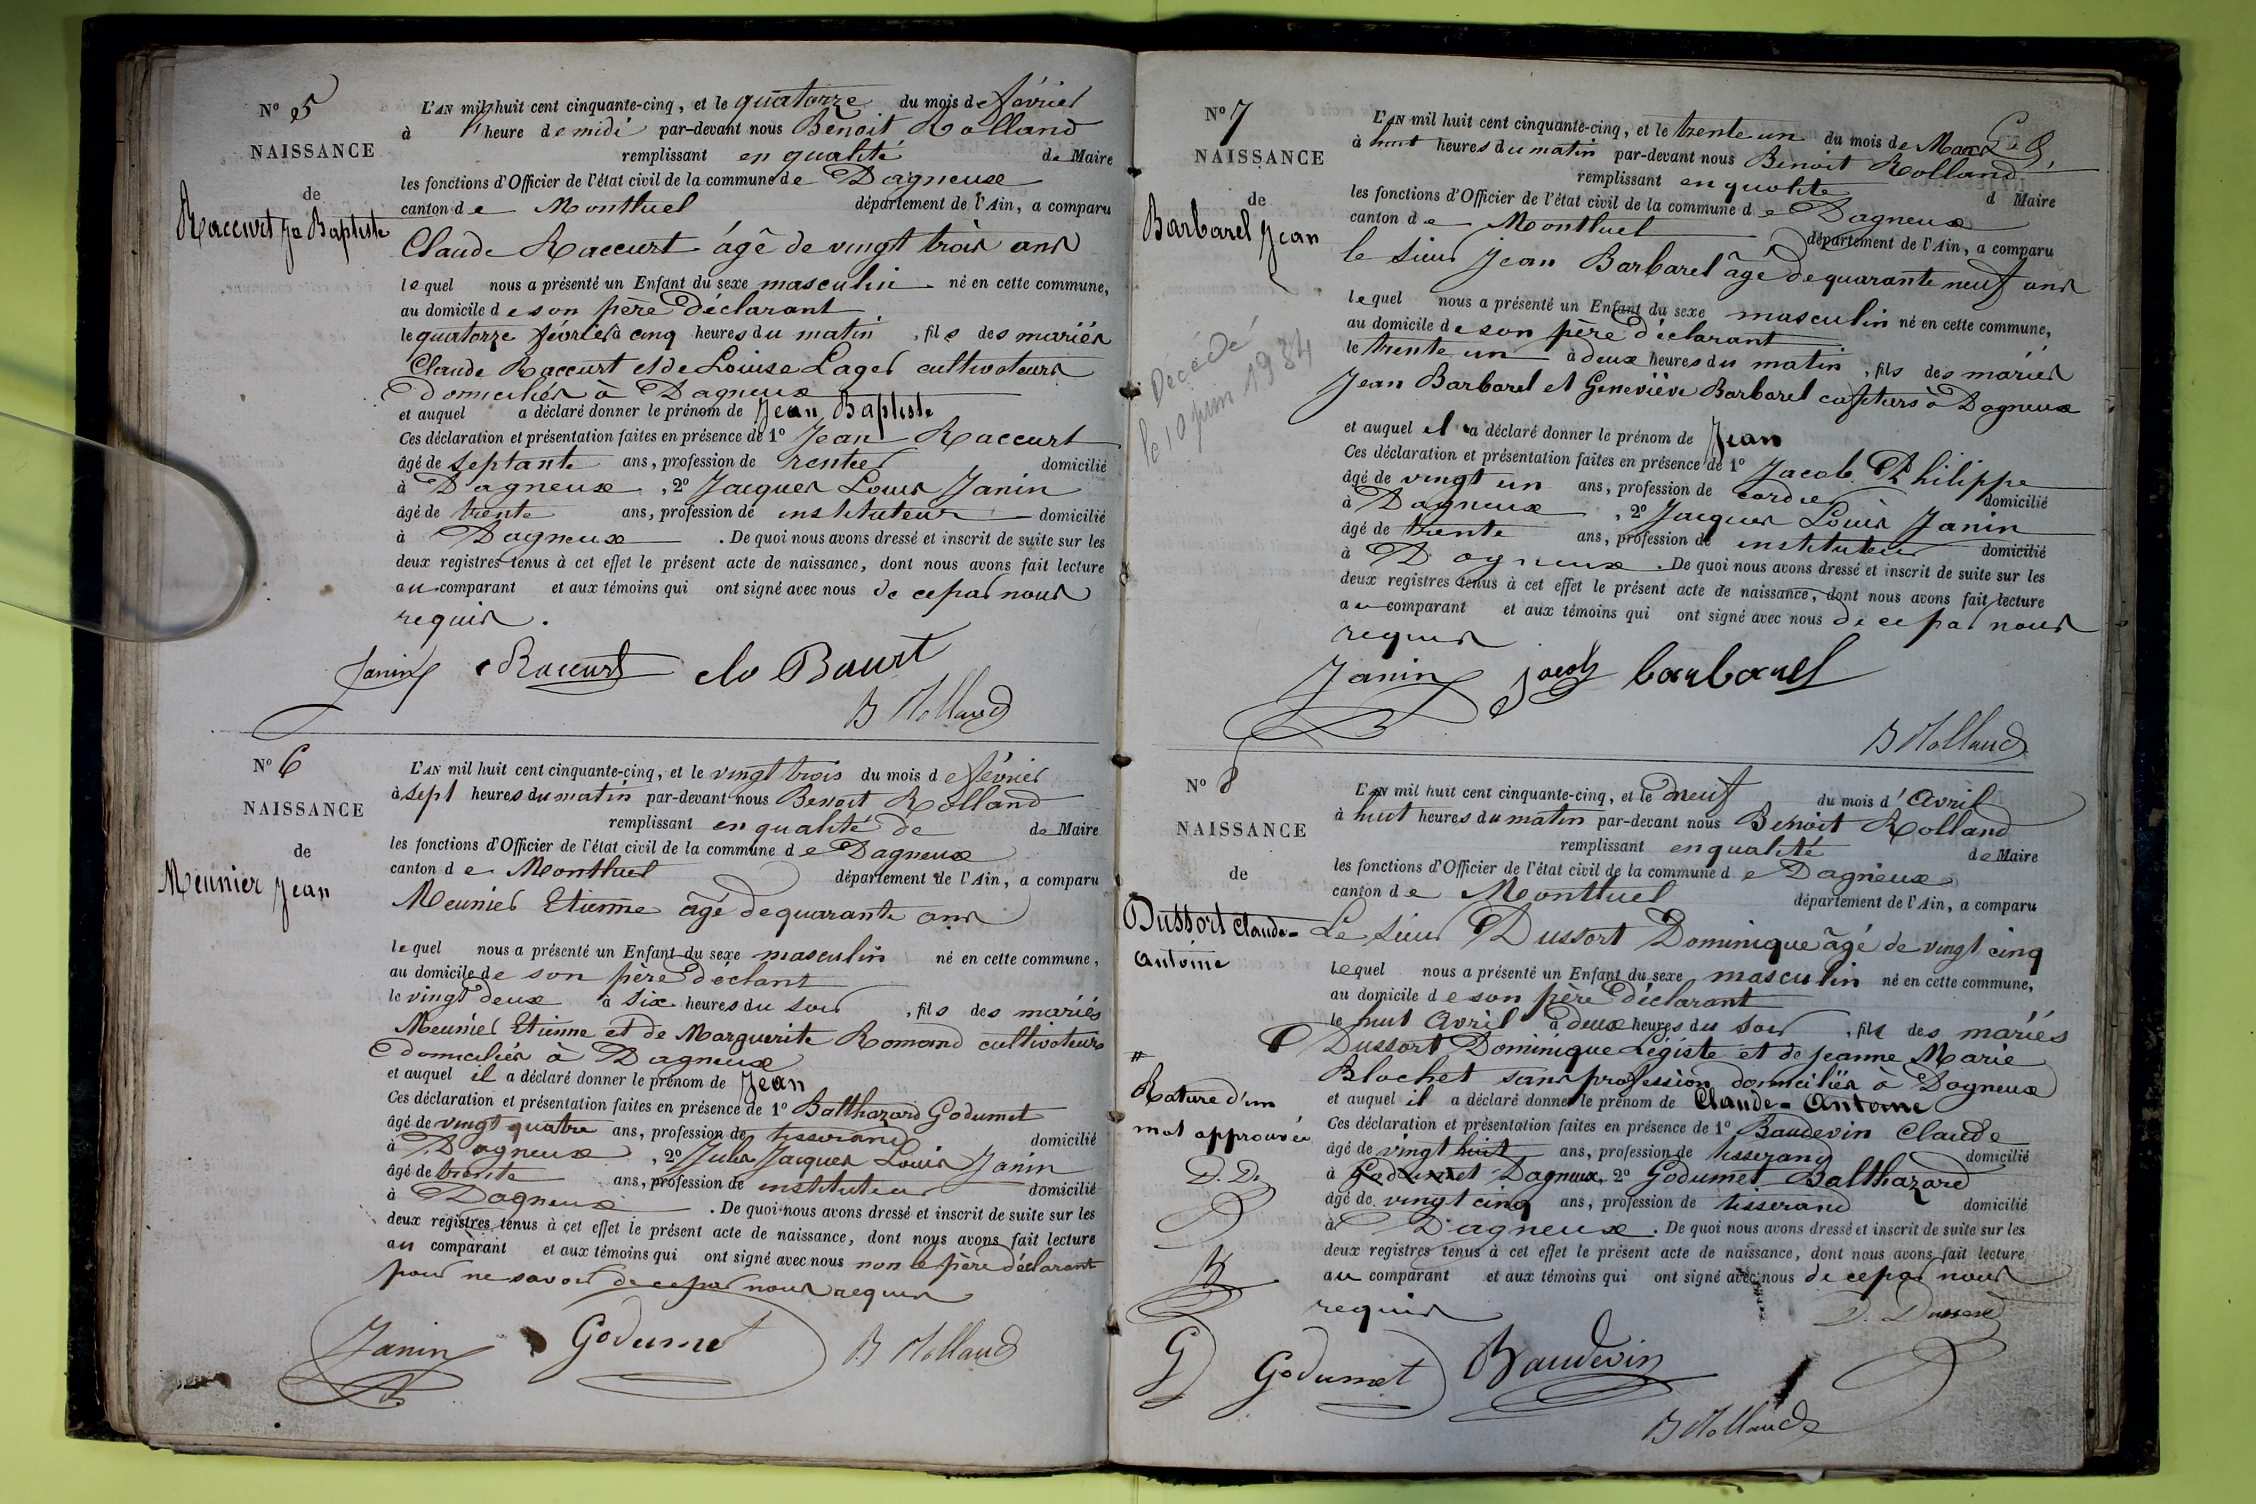 N° 5
NAISSANCE
de
Raccurt Jn Baptiste
L'AN mil huit cent cinquante-cinq, et le quatorze du mois de février
à heure de midi par-devant nous Benoit Rolland
remplissant en qualité de Maire
les fonctions d'Officier de l'état civil de la commune de Dagneux
canton de Montluel département de l'Ain, a comparu
Claude Raccurt âgé de vingt trois ans
lequel nous a présenté un Enfant du sexe masculin né en cette commune,
au domicile de son père déclarant
le quatorze février à cinq heures du matin, fils des mariés
Claude Raccurt et de Louise Lager cultivateurs
domiciliés à Dagneux
et auquel a déclaré donner le prénom de Jean Baptiste
Ces déclaration et présentation faites en présence de 1° Jean Raccurt
âgé de septante ans, profession de rentier domicilié
à Dagneux, 2° Jacques Louis Janin
âgé de trente ans, profession de instituteur domicilié
à Dagneux. De quoi nous avons dressé et inscrit de suite sur les
deux registres tenus à cet effet le présent acte de naissance, dont nous avons fait lecture
au comparant et aux témoins qui ont signé avec nous de ce par nous
requis.
Janin Raccurt
B Rolland
N° 6
NAISSANCE
de
Meunier Jean
L'AN mil huit cent cinquante-cinq, et le vingt trois du mois de février
à sept heures du matin par-devant nous Benoit Rolland
remplissant en qualité de de Maire
les fonctions d'Officier de l'état civil de la commune de Dagneux
canton de Montluel département de l'Ain, a comparu
Meunier Etienne âgé de quarante ans
lequel nous a présenté un Enfant du sexe masculin né en cette commune,
au domicile de son père déclant
le vingt deux à six heures du soir, fils des mariés
Meunier Etienne et de Marguerite Romand cultivateurs
domiciliés à Dagneux
et auquel il a déclaré donner le prénom de Jean
Ces déclaration et présentation faites en présence de 1° Balthazard Godumet
âgé de vingt quatre ans, profession de tisserand domicilié
à Dagneux, 2° Jules Jacques Louis Janin
âgé de trente ans, profession de instituteur domicilié
à Dagneux. De quoi nous avons dressé et inscrit de suite sur les
deux registres tenus à cet effet le présent acte de naissance, dont nous avons fait lecture
au comparant et aux témoins qui ont signé avec nous non le père déclarant
pour ne savoir de ce par nous requis
Janin Godumet B Rolland
N° 7
NAISSANCE
de
Barbarel Jean
Décédé
le 10 juin 1934
L'AN mil huit cent cinquante-cinq, et le trente un du mois de Mars
à huit heures du matin par-devant nous Benoit Rolland
remplissant en qualité d Maire
les fonctions d'Officier de l'état civil de la commune de Dagneux
canton de Montluel département de l'Ain, a comparu
le sieur Jean Barbarel âgé de quarante neuf ans
lequel nous a présenté un Enfant du sexe masculin né en cette commune,
au domicile de son père déclarant
le trente un à deux heures du matin, fils des mariés
Jean Barbarel et Geneviève Barbarel à Dagneux
et auquel il a déclaré donner le prénom de Jean
Ces déclaration et présentation faites en présence de 1° Jacob Philippe
âgé de vingt un ans, profession de cordier domicilié
à Dagneux, 2° Jacques Louis Janin
âgé de trente ans, profession de instituteur domicilié
à Dagneux. De quoi nous avons dressé et inscrit de suite sur les
deux registres tenus à cet effet le présent acte de naissance, dont nous avons fait lecture
au comparant et aux témoins qui ont signé avec nous de ce par nous
requis
Janin jacob barbarel
B Rolland
N° 8
NAISSANCE
de
Dussort Claude-
Antoine
#
Rature d'un
mot approuvée
D. D.
L'AN mil huit cent cinquante-cinq, et le neuf du mois d'Avril
à huit heures du matin par-devant nous Benoit Rolland
remplissant en qualité de Maire
les fonctions d'Officier de l'état civil de la commune de Dagneux
canton de Montluel département de l'Ain, a comparu
Le sieur Dussort Dominique âgé de vingt cinq
lequel nous a présenté un Enfant du sexe masculin né en cette commune,
au domicile de son père déclarant
le huit Avril à deux heures du soir, fils des mariés
Dussort Dominique Légiste et de Jeanne Marie
Blochet sans profession domiciliés à Dagneux
et auquel il a déclaré donner le prénom de Claude-Antoine
Ces déclaration et présentation faites en présence de 1° Baudevin Claude
âgé de vingt huit ans, profession de tisserand domicilié
à Godumet Dagneux, 2° Godumet Balthazard
âgé de vingt cinq ans, profession de tisserand domicilié
à Dagneux. De quoi nous avons dressé et inscrit de suite sur les
deux registres tenus à cet effet le présent acte de naissance, dont nous avons fait lecture
au comparant et aux témoins qui ont signé avec nous de ce par nous
requis D. Dussort
G Godumet Baudevin
B Rolland